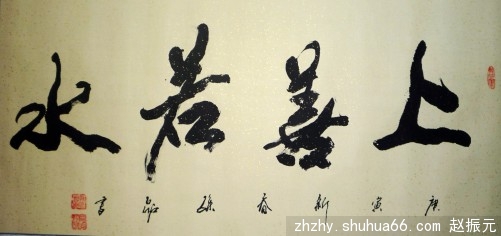 上善若水
庚寅新春
书
zhzhy.shuhua66.com 赵振元